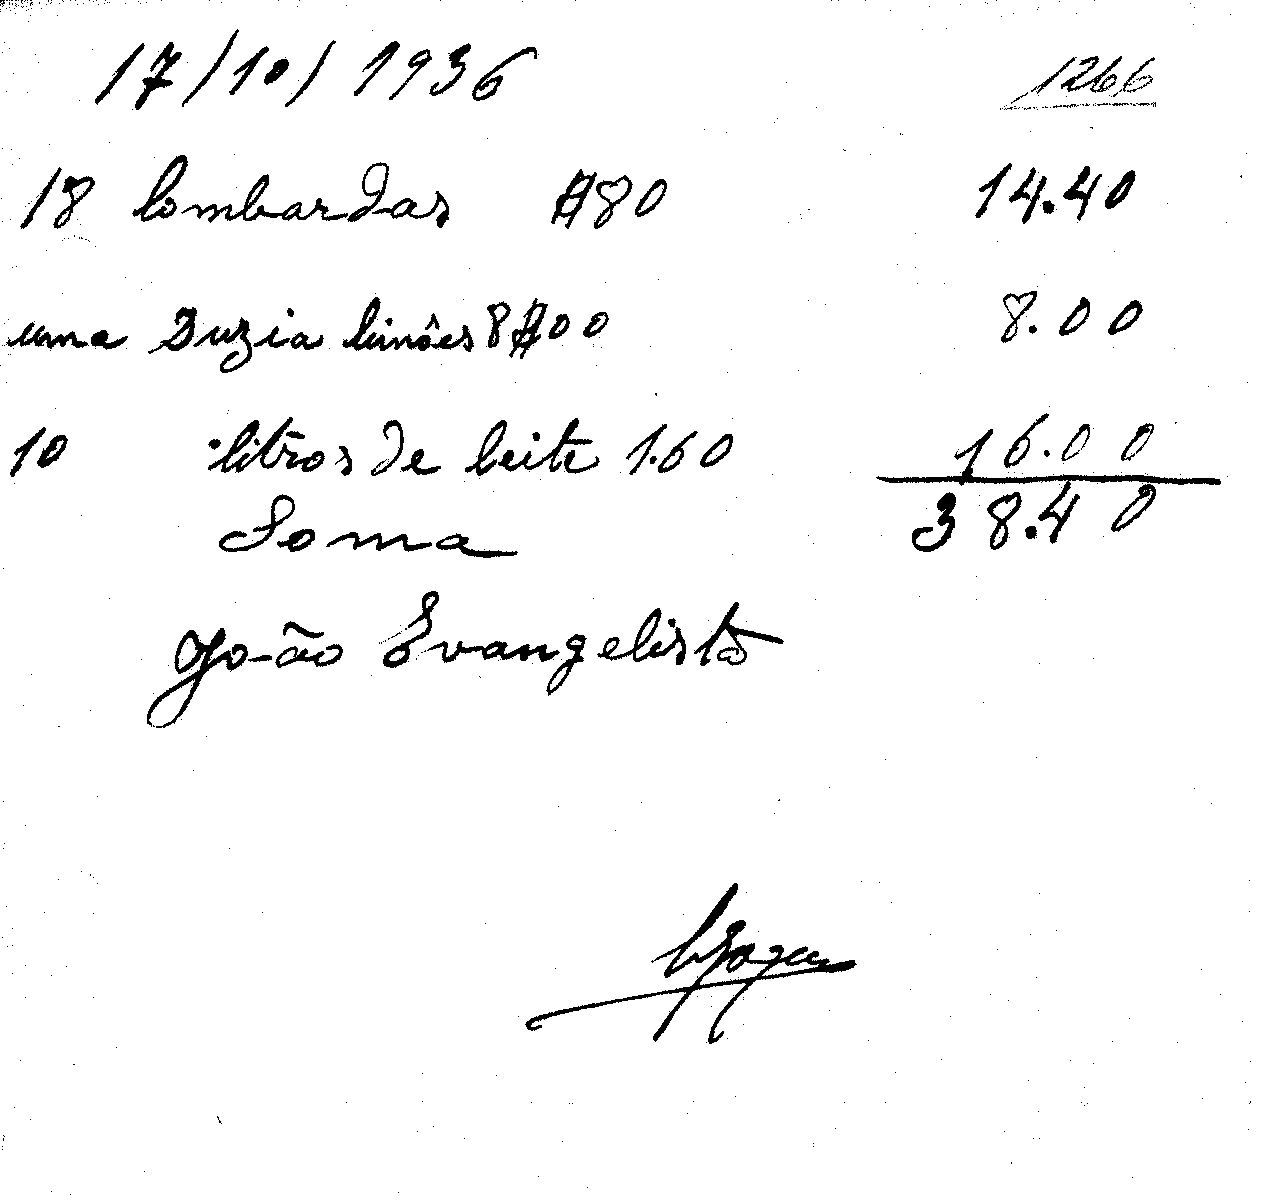 17/10/1936 1266
18 lombardas $80 14.40
uma duzia limões 8$00 8.00
10 litros de leite 1.60 16.00
Soma 38.40
João Evangelista